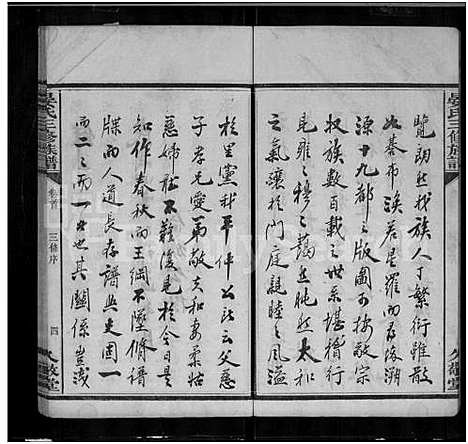 晏氏三修族譜
覽朗然我族人丁繁衍雖散
如秦布溪若星羅而尋源溯
源十九都之版圖可按敬宗
收族數百載之世系堪稽行
見雍之穆之藹然肫然太和
之氣釀於門庭親睦之風溢
久敬堂
於里黨我平仲公所云父慈
子孝兄愛弟敬夫和妻柔姑
慈婦聽不難復見於今日是
知作春秋而王綱不墜脩譜
牒而人道長存譜與史固一
而二二而一者也其關係豈淺
晏氏三修族譜
卷首
三修序
四
久敬堂